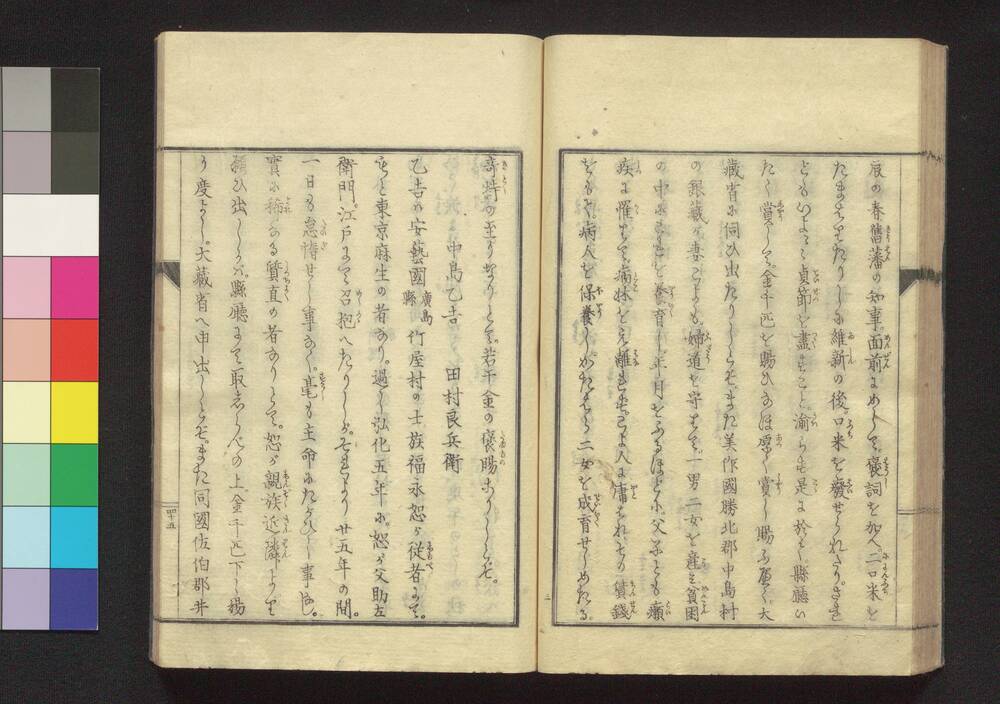 辰の春舊藩の知事。面前にめして。褒詞を加へ。二口米を
たまはりたりしに維新の後口米を廢せられたり。されど
も いよ〳〵貞節を盡すこと渝らず是に於て縣廳い
たく賞して。金千匹を賜ひなほ厚く賞し賜ふ可く。大
藏省に伺ひ出たりしとぞ。また美作國勝北郡中島村
の銀藏が妻 も婦道を守りて。一男二女を産み貧困
の中に を養育し年月をふるほどに父子とも癩
疾に罹りて。病牀をえ離れず 人に庸はれ。その賃錢
をもて。病人を保養し かたはら二女を成育せしめたる。
奇特の至りなりとて。若干金の褒賜ありしとぞ。
中島乙吉 田村良兵衛
乙吉は安藝國廣島縣竹屋村の士族福永恕が從者にて。
もと東京麻生の者なり。過し弘化五年に。恕が父助左
衛門。江戸にて召抱へたりしが。それより廿五年の間。
一日も怠惰せし事なく。毫も主命にたがひし事なし。
實に稀なる質直の者なりとて。恕が親族近隣より
願ひ出しかば。縣廳にて取しらべの上金千匹下し賜
り度よし。大藏省へ申出しとぞ。また同國佐伯郡井
四十五